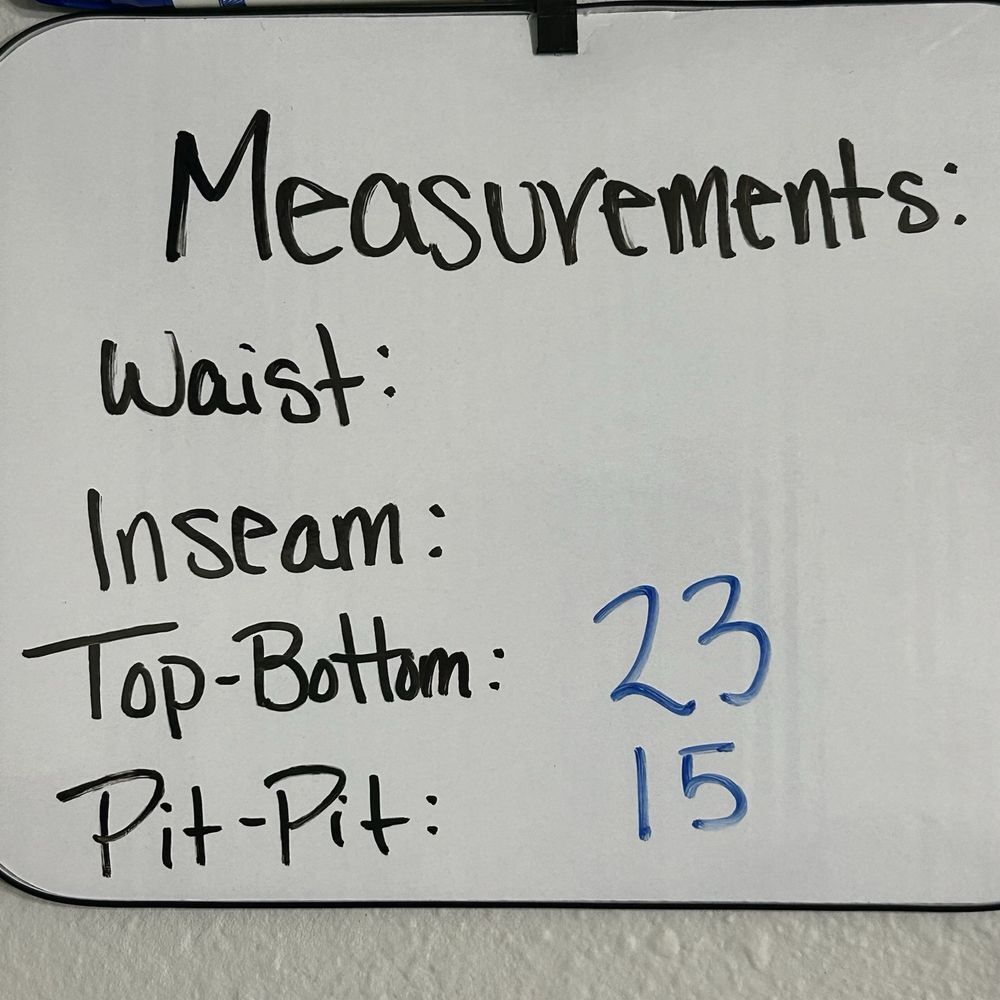 Measurements:
Waist:
Inseam:
Top-Bottom: 23
Pit-Pit: 15